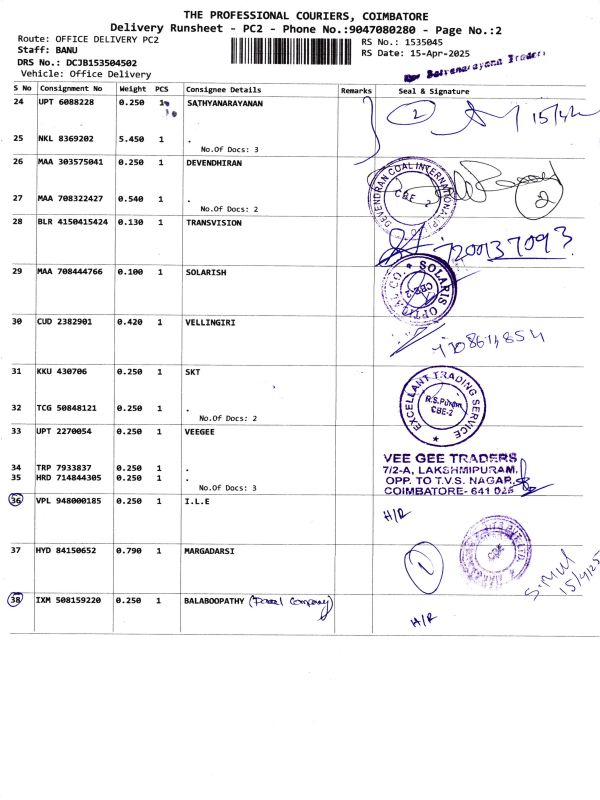 THE PROFESSIONAL COURIERS, COIMBATORE
Delivery Runsheet - PC2 - Phone No.:9047080280 - Page No.:2
Route: OFFICE DELIVERY PC2
RS No.: 1535045
Staff: BANU
RS Date: 15-Apr-2025
DRS No.: DCJB153504502
Vehicle: Office Delivery
S No Consignment No Weight PCS Consignee Details Remarks Seal & Signature
24 UPT 6088228 0.250 1 SATHYANARAYANAN
2
25 NKL 8369202 5.450 1 .
No.Of Docs: 3
26 MAA 303575041 0.250 1 DEVENDHIRAN
DEVENDRAN COAL INTERNATIONAL
CBE - 2
2
27 MAA 708322427 0.540 1 .
No.Of Docs: 2
28 BLR 4150415424 0.130 1 TRANSVISION
29 MAA 708444766 0.100 1 SOLARISH
SOLARIS OPTICAL CO.
CBE-2
30 CUD 2382901 0.420 1 VELLINGIRI
31 KKU 430706 0.250 1 SKT
EXCELLANT TRADING SERVICE
R.S.Puram
CBE-2
32 TCG 50848121 0.250 1 .
No.Of Docs: 2
33 UPT 2270054 0.250 1 VEEGEE
VEE GEE TRADERS
7/2-A, LAKSHMIPURAM,
OPP. TO T.V.S. NAGAR,
COIMBATORE- 641 025
34 TRP 7933837 0.250 1 .
35 HRD 714844305 0.250 1 .
No.Of Docs: 3
36 VPL 948000185 0.250 1 I.L.E
H/R
37 HYD 84150652 0.790 1 MARGADARSI
1
CBE
15/4/25
38 IXM 508159220 0.250 1 BALABOOPATHY (Parcel Company)
H/R